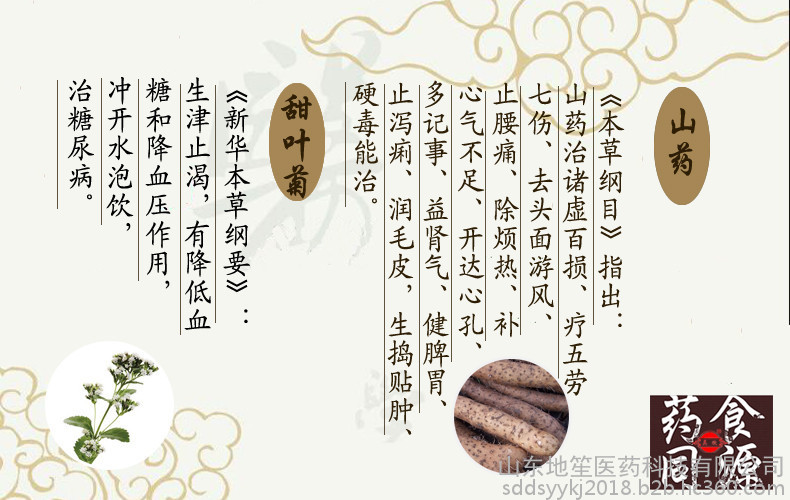 山药
《本草纲目》指出：
山药治诸虚百损、疗五劳
七伤、去头面游风、
止腰痛、除烦热、补
心气不足、开达心孔、
多记事、益肾气、健脾胃、
止泻痢、润毛皮，生捣贴肿、
硬毒能治。
甜叶菊
《新华本草纲要》：
生津止渴，有降低血
糖和降血压作用，
冲开水泡饮，
治糖尿病。
食源
药同
山东地笙医药科技有限公司
sddsyykj2018.b2b.hc360.com